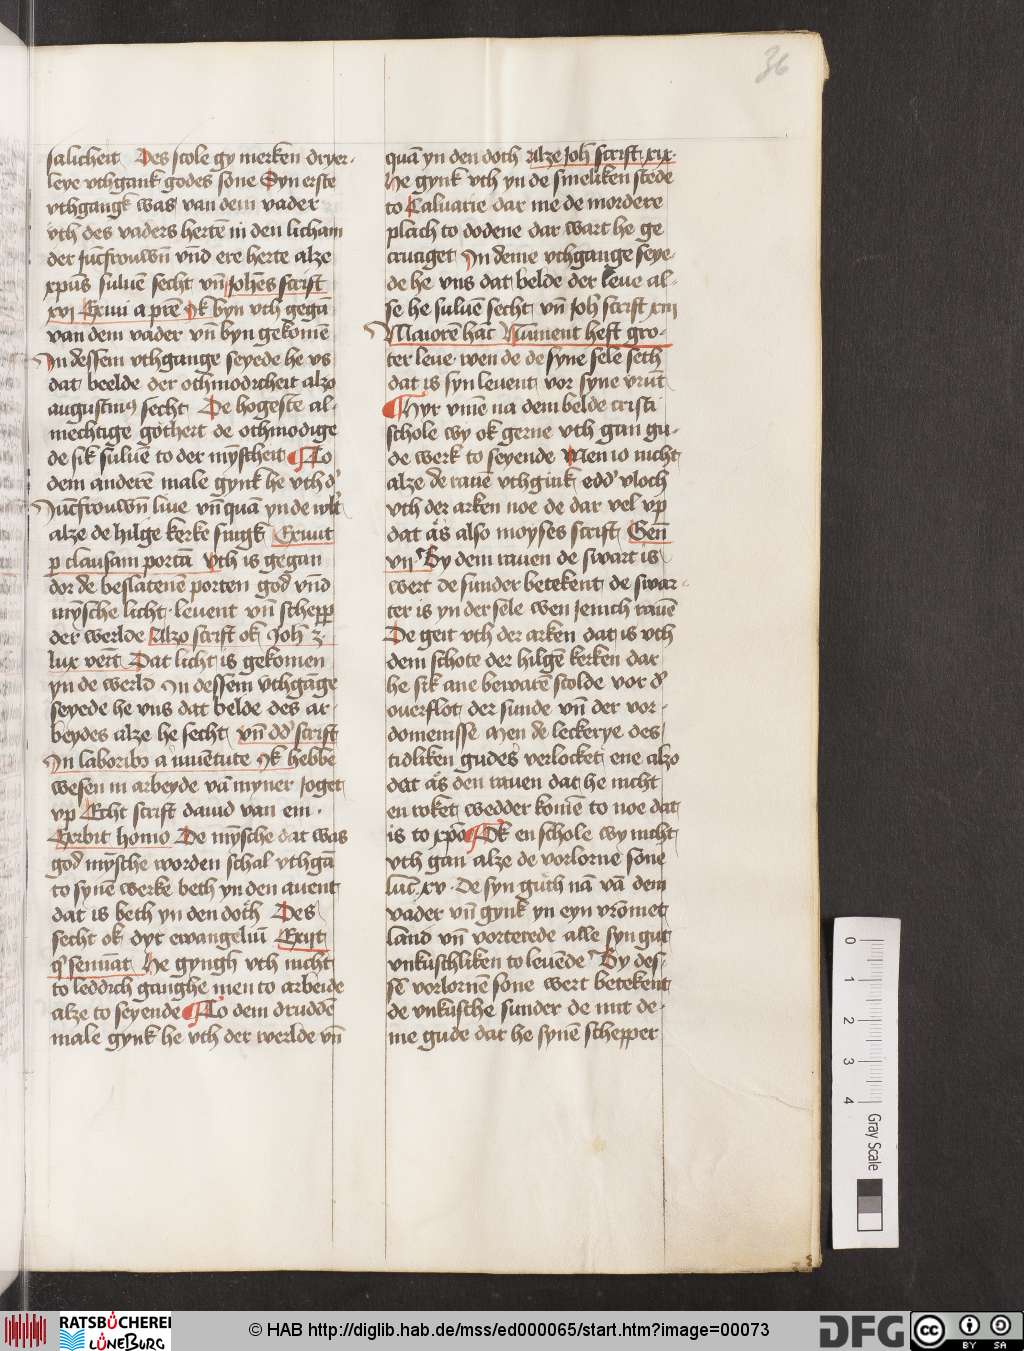 36
salicheit Des scole gy merken dryer-
leye vthgank godes sone Syn erste
vthgangk was van dem vader
vth des vaders hertē in den licham
der jūcfrouwē vnd ere herte alze
xpūs suluē secht vn̄ johēs scrift
xvi Exiui a prē Jk byn vth gegā
van dem vader vn̄ byn gekomē
In dessem vthgange seyede he vs
dat beelde der othmodicheit alzo
augustinꝰ secht De hogeste al-
mechtige gothert de othmodige
de sik suluē to der mȳscheit To
dem anderē male gynk he vth dʼ
Jūcfrouwē liue vn̄ quā yn de wlt
alze de hilge kerke singk Exiuit
p clausam portā Vth is gegan
dor de beslatenē porten god vnd
mȳsche licht leuent vn̄ schepp
der werlde Alzo scrift ok Joh 3
lux vert Dat licht is gekomen
yn de werld In dessem vthgāge
seyede he vns dat belde des ar-
beydes alze he secht vn̄ dd scrift
In laboribꝰ a iuuētute Jk hebbe
wesen in arbeyde vā myner joget
vp Echt scrift dauid van em
Exibit homo De mȳsche dat was
god mȳsche worden schal vthgā
to synē werke beth yn den auent
dat is beth yn den doth Des
secht ok dyt ewangeliū Exijt
qͥ seminat He gyngh vth nicht
to leddich ganghe men to arbeide
alze to seyende To dem druddē
male gynk he vth der werlde vn̄
quā yn den doth Alze Joh scrift xix
He gynk vth yn de smeliken stede
to Caluarie dar me de mordere
plach to dodene dar wart he ge
cruciget In deme vthgange seye-
de he vns dat belde der leue al-
se he suluē secht vn̄ Joh scrift xiii
Maiorē hac Nūment heft gro-
ter leue wen de de syne sele seth
dat is syn leuent vor syne vrūt
Hyr vmē na dem belde cristi
schole wy ok gerne vth gan gu-
de werk to seyende Men io nicht
alze de rauē vthgink edd vloch
vth der arken noe de dar vel vp
dat as also moyses scrift Gen̄
vii By dem rauen de swart is
wert de sunder betekent de swar-
ter is yn der sele wen jenich rauē
De geit vth der arken dat is vth
dem schote der hilgē kerken dar
he sik ane bewarē scolde vor dʼ
ouerflot der sunde vn̄ der vor-
domenisse Men de leckerye des
tidliken gudes verlocket ene alzo
dat as den rauen dat he nicht
en roket wedder komē to noe dat
is to xpō Ok en schole wy nicht
vth gan alze de vorlorne sone
luc xv De syn guth nā vā dem
vader vn̄ gynk yn eyn vrōmet
land vn̄ vorterede alle syn gut
vnkuschliken to leuēde By des-
sē vorlornē sone wert betekent
de vnkusche sunder de mit de-
me gude dat he synē schepper
0 1 2 3 4
Gray Scale
RATSBÜCHEREI
LÜNEBURG
© HAB http://diglib.hab.de/mss/ed000065/start.htm?image=00073
DFG
cc BY SA